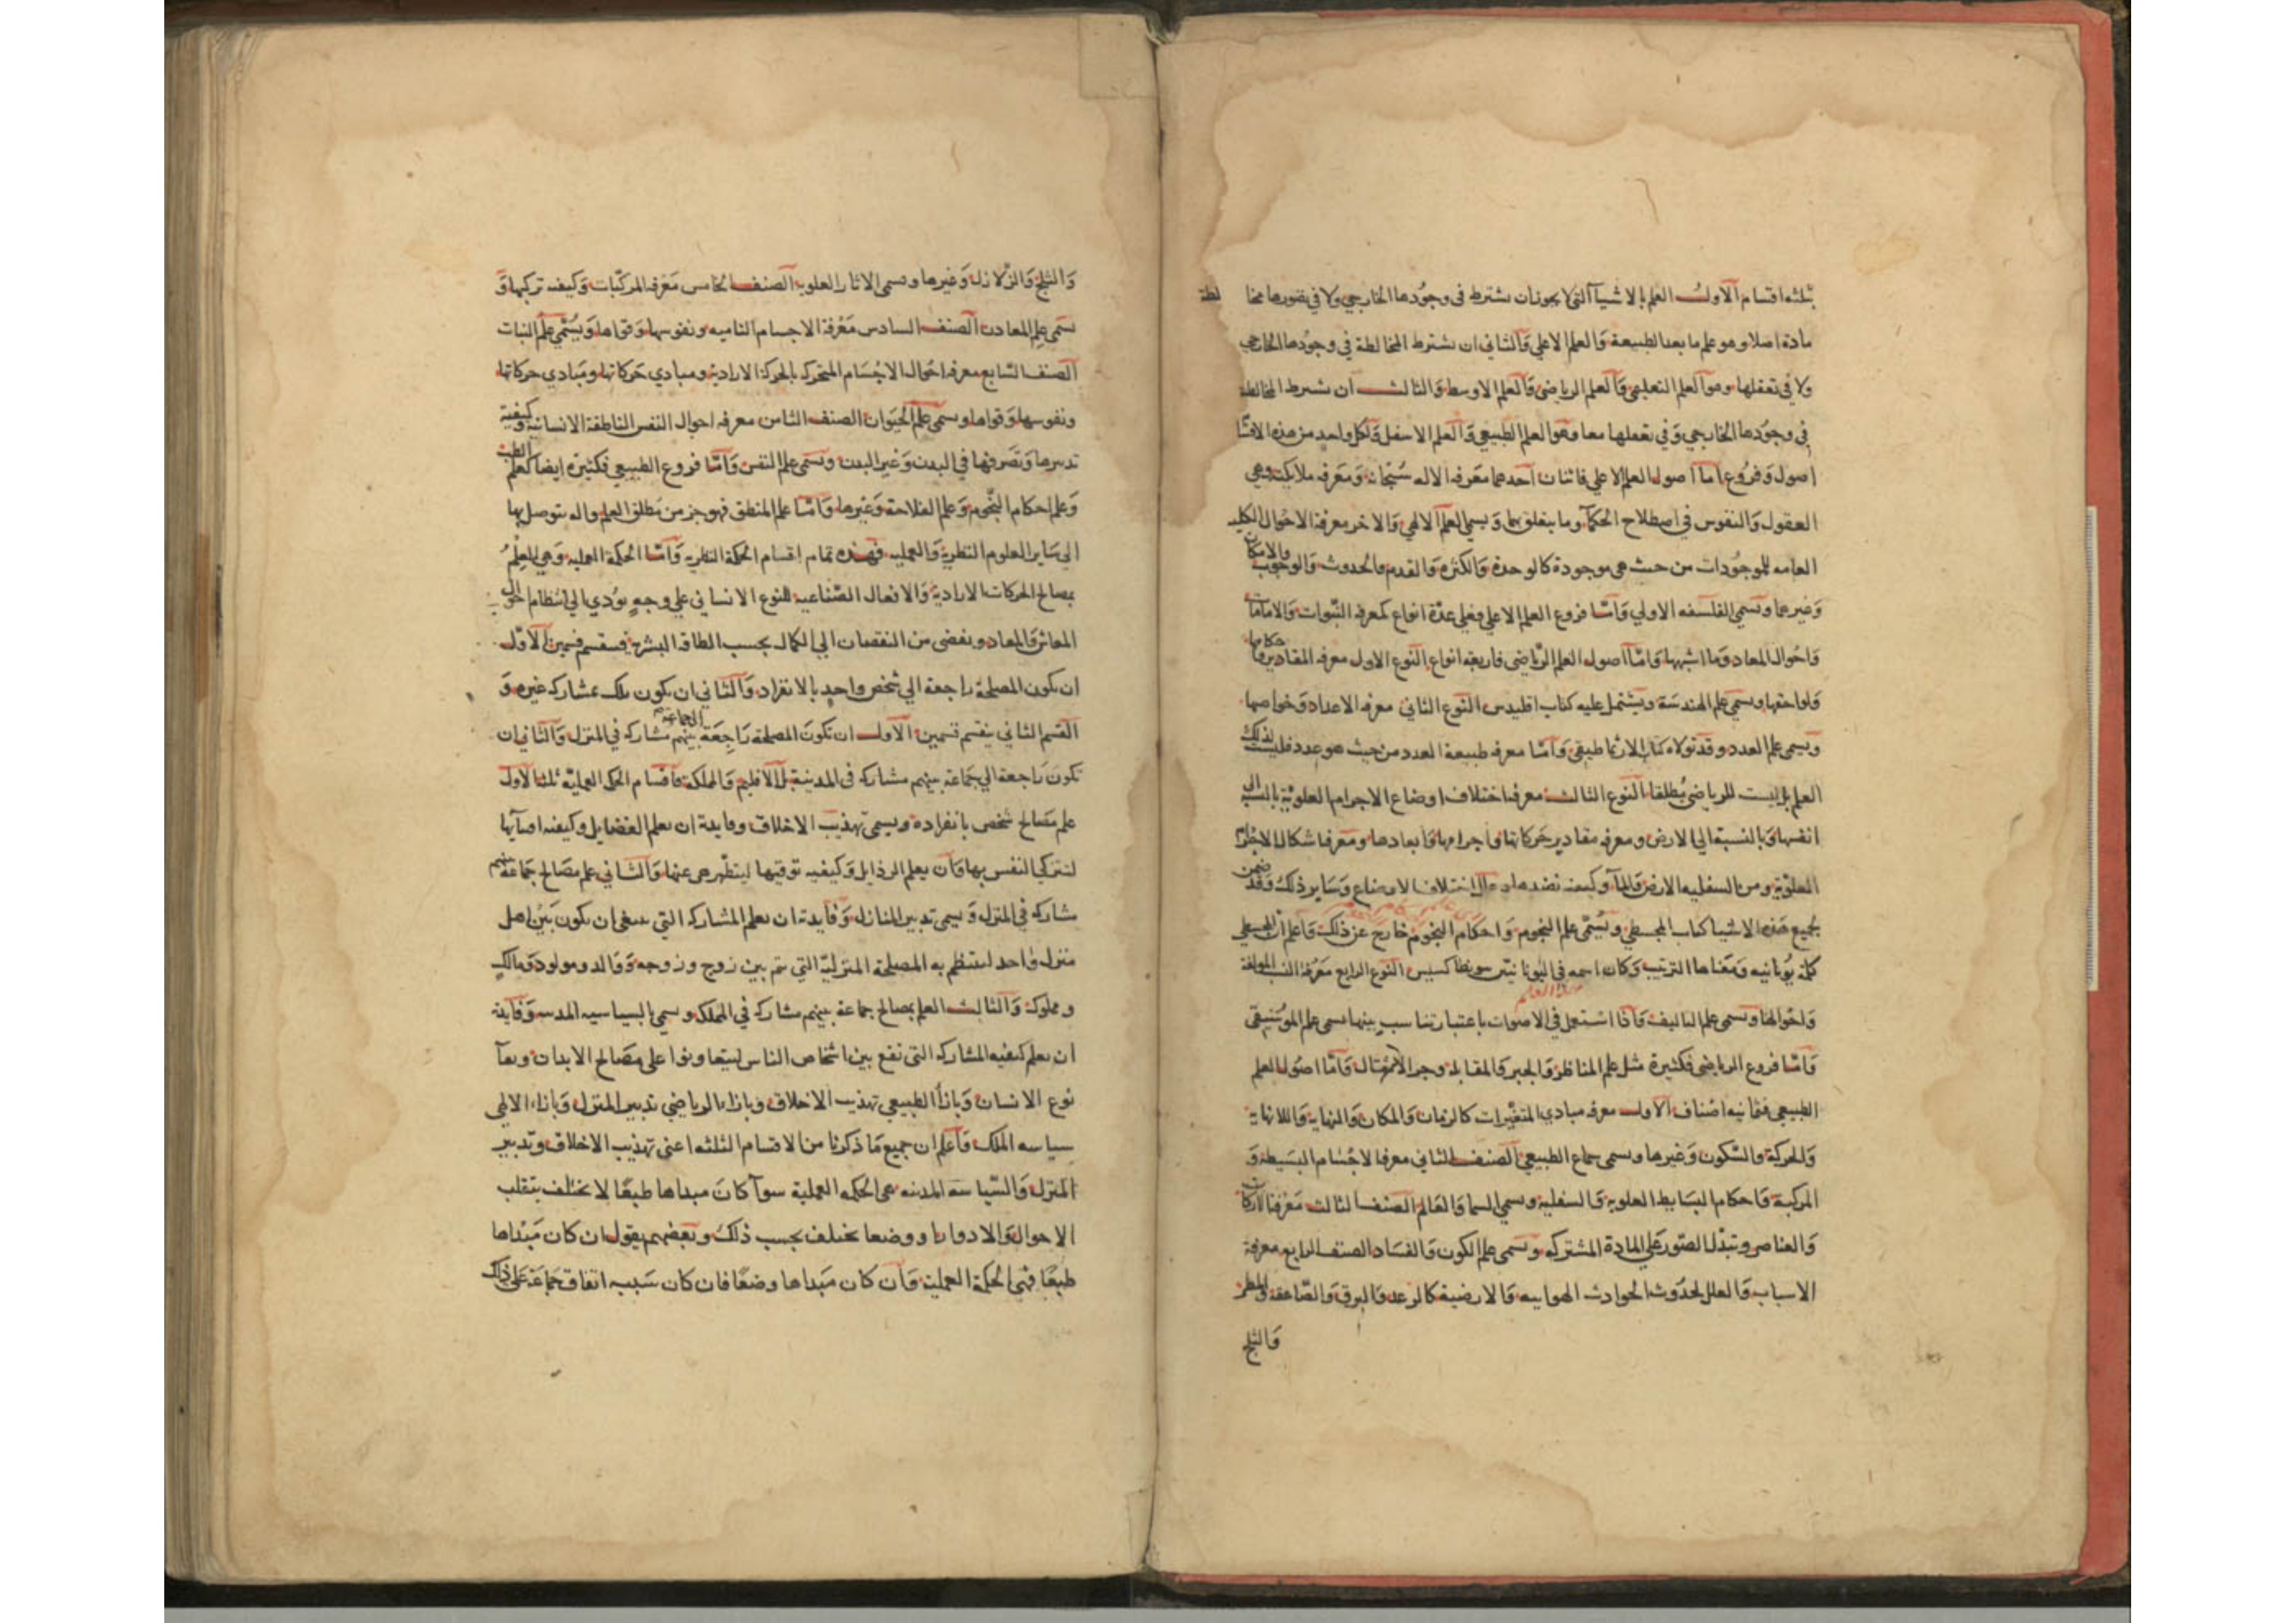 ثلثه اقسام الاول العلم بالاشياء التى لا يجوز ان يشترط فى وجودها الخارجي ولا في تصورها مخا لطة
مادة اصلا وهو علم ما بعد الطبيعة والعلم الاعلي والثاني ان يشترط المخالطة في وجودها الخارجي
ولا في تعقلها وهو العلم التعليمي والعلم الرياضى والعلم الاوسط والثالث ان يشترط المخالطة
فى وجودها الخارجي وفي تعقلها معا وهو العلم الطبيعي والعلم الاسفل ولكل واحد من هذه الاقسا
اصول وفروع اما اصول العلم الاعلي فاثنان احدهما معرفه الاله سبحانه ومعرفه ملايكته وهي
العقول والنفوس في اصطلاح الحكماء وما يتعلق بها ويسمي العلم الالهي والاخر معرفة الاحوال الكليه
العامه للموجودات من حيث هى موجودة كالوحدة والكثره والقدم والحدوث والوجوب والامكان
وغيرها وتسمي الفلسفه الاولي واما فروع العلم الاعلي فعلي عدة انواع كمعرفه النبوات والامامات
واحوال المعاد وما اشبهها واما اصول العلم الرياضى فاربعه انواع النوع الاول معرفه المقادير واحكامها
ولواحقها ويسمي علم الهندسة ويشتمل عليه كتاب اقليدس النوع الثاني معرفه الاعداد وخواصها
ويسمى علم العدد وقد تولاه كتاب الارثماطيقى واما معرفه طبيعة العدد من حيث هو عدد فليست لذلك
العلم بل ليست للرياضى مطلقا النوع الثالث معرفه اختلاف اوضاع الاجرام العلوية بالنسبة الى
انفسها وبالنسبة الي الارض ومعرفه مقادير حركاتها واجرامها وابعادها ومعرفه اشكال الاجرام
العلوية ومن السفليه الارض والماء وكيفيه نضدها وحال اختلاف الاوضاع وساير ذلك وقد ضمن
جميع هذه الاشيا كتاب المجسطي ويسمى علم النجوم واحكام النجوم خارج عن ذلك واعلم ان المجسطي
كلمة يونانيه ومعناها الترتيب وكان اسمه فى اليونانيين سونطاكسيس النوع الرابع معرفة النسب المولفة
واحوالها ويسمى علم التاليف واذا استعمل في الاصوات باعتبار تناسب بينها يسمى علم الموسيقى
واما فروع الرياضى فكثيرة مثل علم المناظر والجبر والمقابله وجر الاثقال واما اصول العلم
الطبيعي فثمانيه اصناف الاول معرفه مبادي المتغيرات كالزمان والمكان والنهاية واللانهاية
والحركة والسكون وغيرها ويسمى سماع الطبيعي الصنف الثاني معرفة الاجسام البسيطه و
المركبة واحكام البسايط العلويه والسفلية ويسمي السما والعالم الصنف الثالث معرفة الاركان
والعناصر وتبدل الصور علي المادة المشتركه ويسمى علم الكون والفساد الصنف الرابع معرفة
الاسباب والعلل لحدوث الحوادث الهواييه والارضية كالرعد والبرق والصاعقه والمطر
والثلج
والثلج والزلازل وغيرها ويسمى الاثار العلويه الصنف الخامس معرفه المركبات وكيفيه تركيبها و
يسمى علم المعادن الصنف السادس معرفة الاجسام الناميه ونفوسها وقواها ويسمى علم النبات
الصنف السابع معرفه احوال الاجسام المتحركه بالحركة الارادية ومبادي حركاتها ومبادي حركاتها
ونفوسها وقواها ويسمى علم الحيوان الصنف الثامن معرفه احوال النفس الناطقة الانسانيه وكيفية
تدبيرها وتصرفها في البدن وغير البدن ويسمى علم النفس واما فروع الطبيعي فكثيره ايضا كعلم الطب
وعلم احكام النجوم وعلم الفلاحة وغيرها واما علم المنطق فهو جز من مطلق العلم واله يتوصل بها
الي ساير العلوم النظرية والعمليه فهذه تمام اقسام الحكمة النظريه واما الحكمة العمليه وهي العلم
بمصالح الحركات الارادية والافعال الصناعيه للنوع الانساني علي وجه يودي الي انتظام احوال
المعاش والمعاد ويفضى من النقصان الي الكمال بحسب الطاقه البشريه فينقسم قسمين الاول
ان يكون المصلحة راجعة الي شخص واحد بالانفراد والثاني ان يكون تلك بمشاركه غيره و
القسم الثاني ينقسم قسمين الاول ان تكون المصلحة راجعة الى جماعة بينهم مشاركه في المنزل والثاني ان
تكون راجعة الي جماعة بينهم مشاركه فى المدينة بل الاقليم والمملكة فاقسام الحكمه العملية ثلثة الاول
علم مصالح شخص بانفراده ويسمى تهذيب الاخلاق وفايدة ان يعلم الفضايل وكيفيه اقتنايها
لتتزكي النفس بها وان يعلم الرذايل وكيفيه توقيها ليتطهر عنها والثاني علم مصالح جماعة بينهم
مشاركه في المنزل ويسمى تدبير المنازل وفايدة ان يعلم المشاركه التي ينبغى ان يكون بين اهل
منزل واحد لينتظم به المصلحة المنزلية التي تتم بين زوج وزوجه ووالد ومولود ومالك
ومملوك والثالث العلم بمصالح جماعة بينهم مشاركه في المملكه ويسمي بالسياسيه المدنيه وفايدة
ان يعلم كيفيه المشاركه التي تقع بين اشخاص الناس ليتعاونوا على مصالح الابدان وبقا
نوع الانسان وبازاء الطبيعي تهذيب الاخلاق وبازاء الرياضي تدبير المنزل وبازاء الالهى
سياسه الملك واعلم ان جميع ما ذكرنا من الاقسام الثلثه اعنى تهذيب الاخلاق وتدبير
المنزل والسياسه المدنيه هى الحكمه العملية سوا كان مبداها طبعا لا يختلف بتقلب
الاحوال والادوار او وضعا يختلف بحسب ذلك وبعضهم يقول ان كان مبداها
طبعا فهى الحكمة العملية وان كان مبداها وضعا فان كان سببه اتفاق جماعة على ذلك